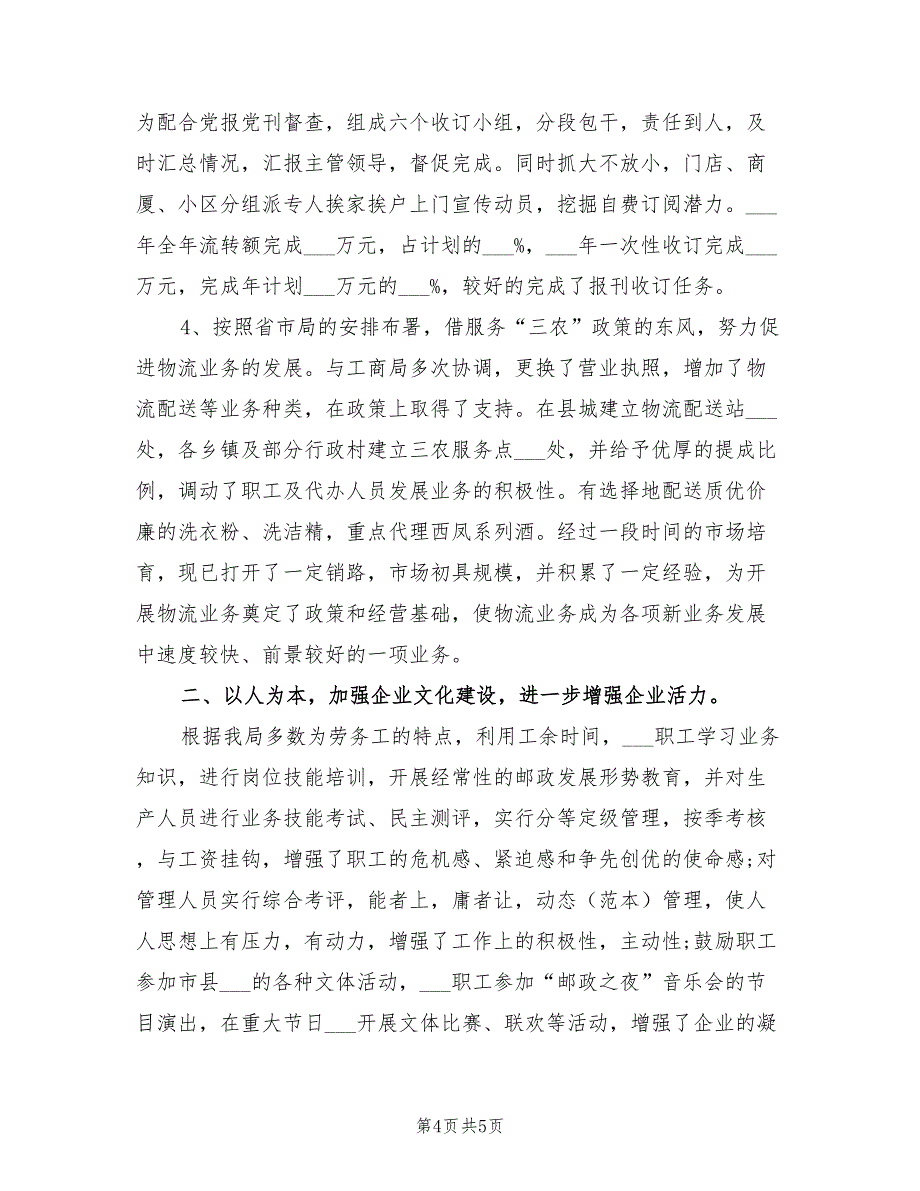 为配合党报党刊督查，组成六个收订小组，分段包干，责任到人，及
时汇总情况，汇报主管领导，督促完成。同时抓大不放小，门店、商
厦、小区分组派专人挨家挨户上门宣传动员，挖掘自费订阅潜力。___
年全年流转额完成___万元，占计划的___%，___年一次性收订完成___
万元，完成年计划___万元的___%，较好的完成了报刊收订任务。
4、按照省市局的安排布署，借服务“三农”政策的东风，努力促
进物流业务的发展。与工商局多次协调，更换了营业执照，增加了物
流配送等业务种类，在政策上取得了支持。在县城建立物流配送站___
处，各乡镇及部分行政村建立三农服务点___处，并给予优厚的提成比
例，调动了职工及代办人员发展业务的积极性。有选择地配送质优价
廉的洗衣粉、洗洁精，重点代理西凤系列酒。经过一段时间的市场培
育，现已打开了一定销路，市场初具规模，并积累了一定经验，为开
展物流业务奠定了政策和经营基础，使物流业务成为各项新业务发展
中速度较快、前景较好的一项业务。
二、以人为本，加强企业文化建设，进一步增强企业活力。
根据我局多数为劳务工的特点，利用工余时间，___职工学习业务
知识，进行岗位技能培训，开展经常性的邮政发展形势教育，并对生
产人员进行业务技能考试、民主测评，实行分等定级管理，按季考核
，与工资挂钩，增强了职工的危机感、紧迫感和争先创优的使命感;对
管理人员实行综合考评，能者上，庸者让，动态（范本）管理，使人
人思想上有压力，有动力，增强了工作上的积极性，主动性;鼓励职工
参加市县___的各种文体活动，___职工参加“邮政之夜”音乐会的节
目演出，在重大节日___开展文体比赛、联欢等活动，增强了企业的凝
第4页共5页